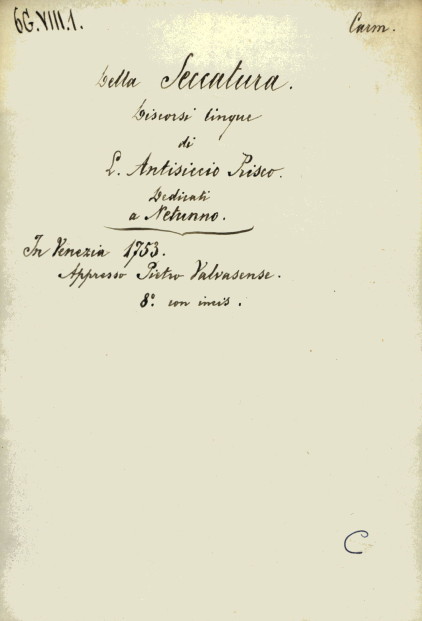 6G.VIII.1.
Carm.
Della Seccatura.
Discorsi cinque
di
L. Antisiccio Prisco.
Dedicati
a Netunno.
In Venezia 1753.
Appresso Pietro Valvasense.
8.° con incis.
C